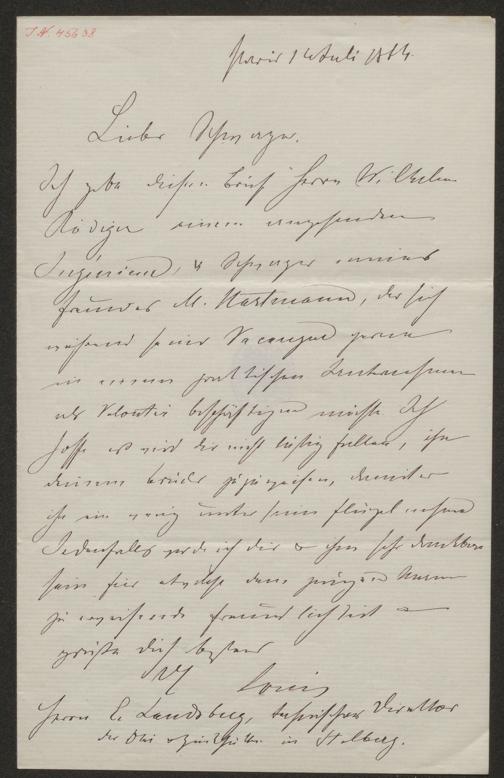 I.N. 45638
Paris 1 Juli 1864.
Lieber Schwager.
Ich gebe diesen Brief Herrn Wilhelm
Rödiger einem angehenden
Ingenieur, u Schwager meines
Freundes M. Hartmann, der sich
während seiner Vacanzen gerne
in einem praktischen Unternehmen
als Volontär beschäftigen möchte Ich
hoffe es wird dir nicht lästig fallen, ihn
deinem Bruder zuzuweisen, damit er
ihn ein wenig unter seine Flügel nehme
Jedenfalls werde ich dir u ihm sehr dankbar
sein für etwaige dem jungen Mann
zu erweisende Freundlichkeit
grüße dich bestens
Louis
Herrn E. Landsberg, technischer Direktor
der Blei u Zinkhütte in Stolberg.